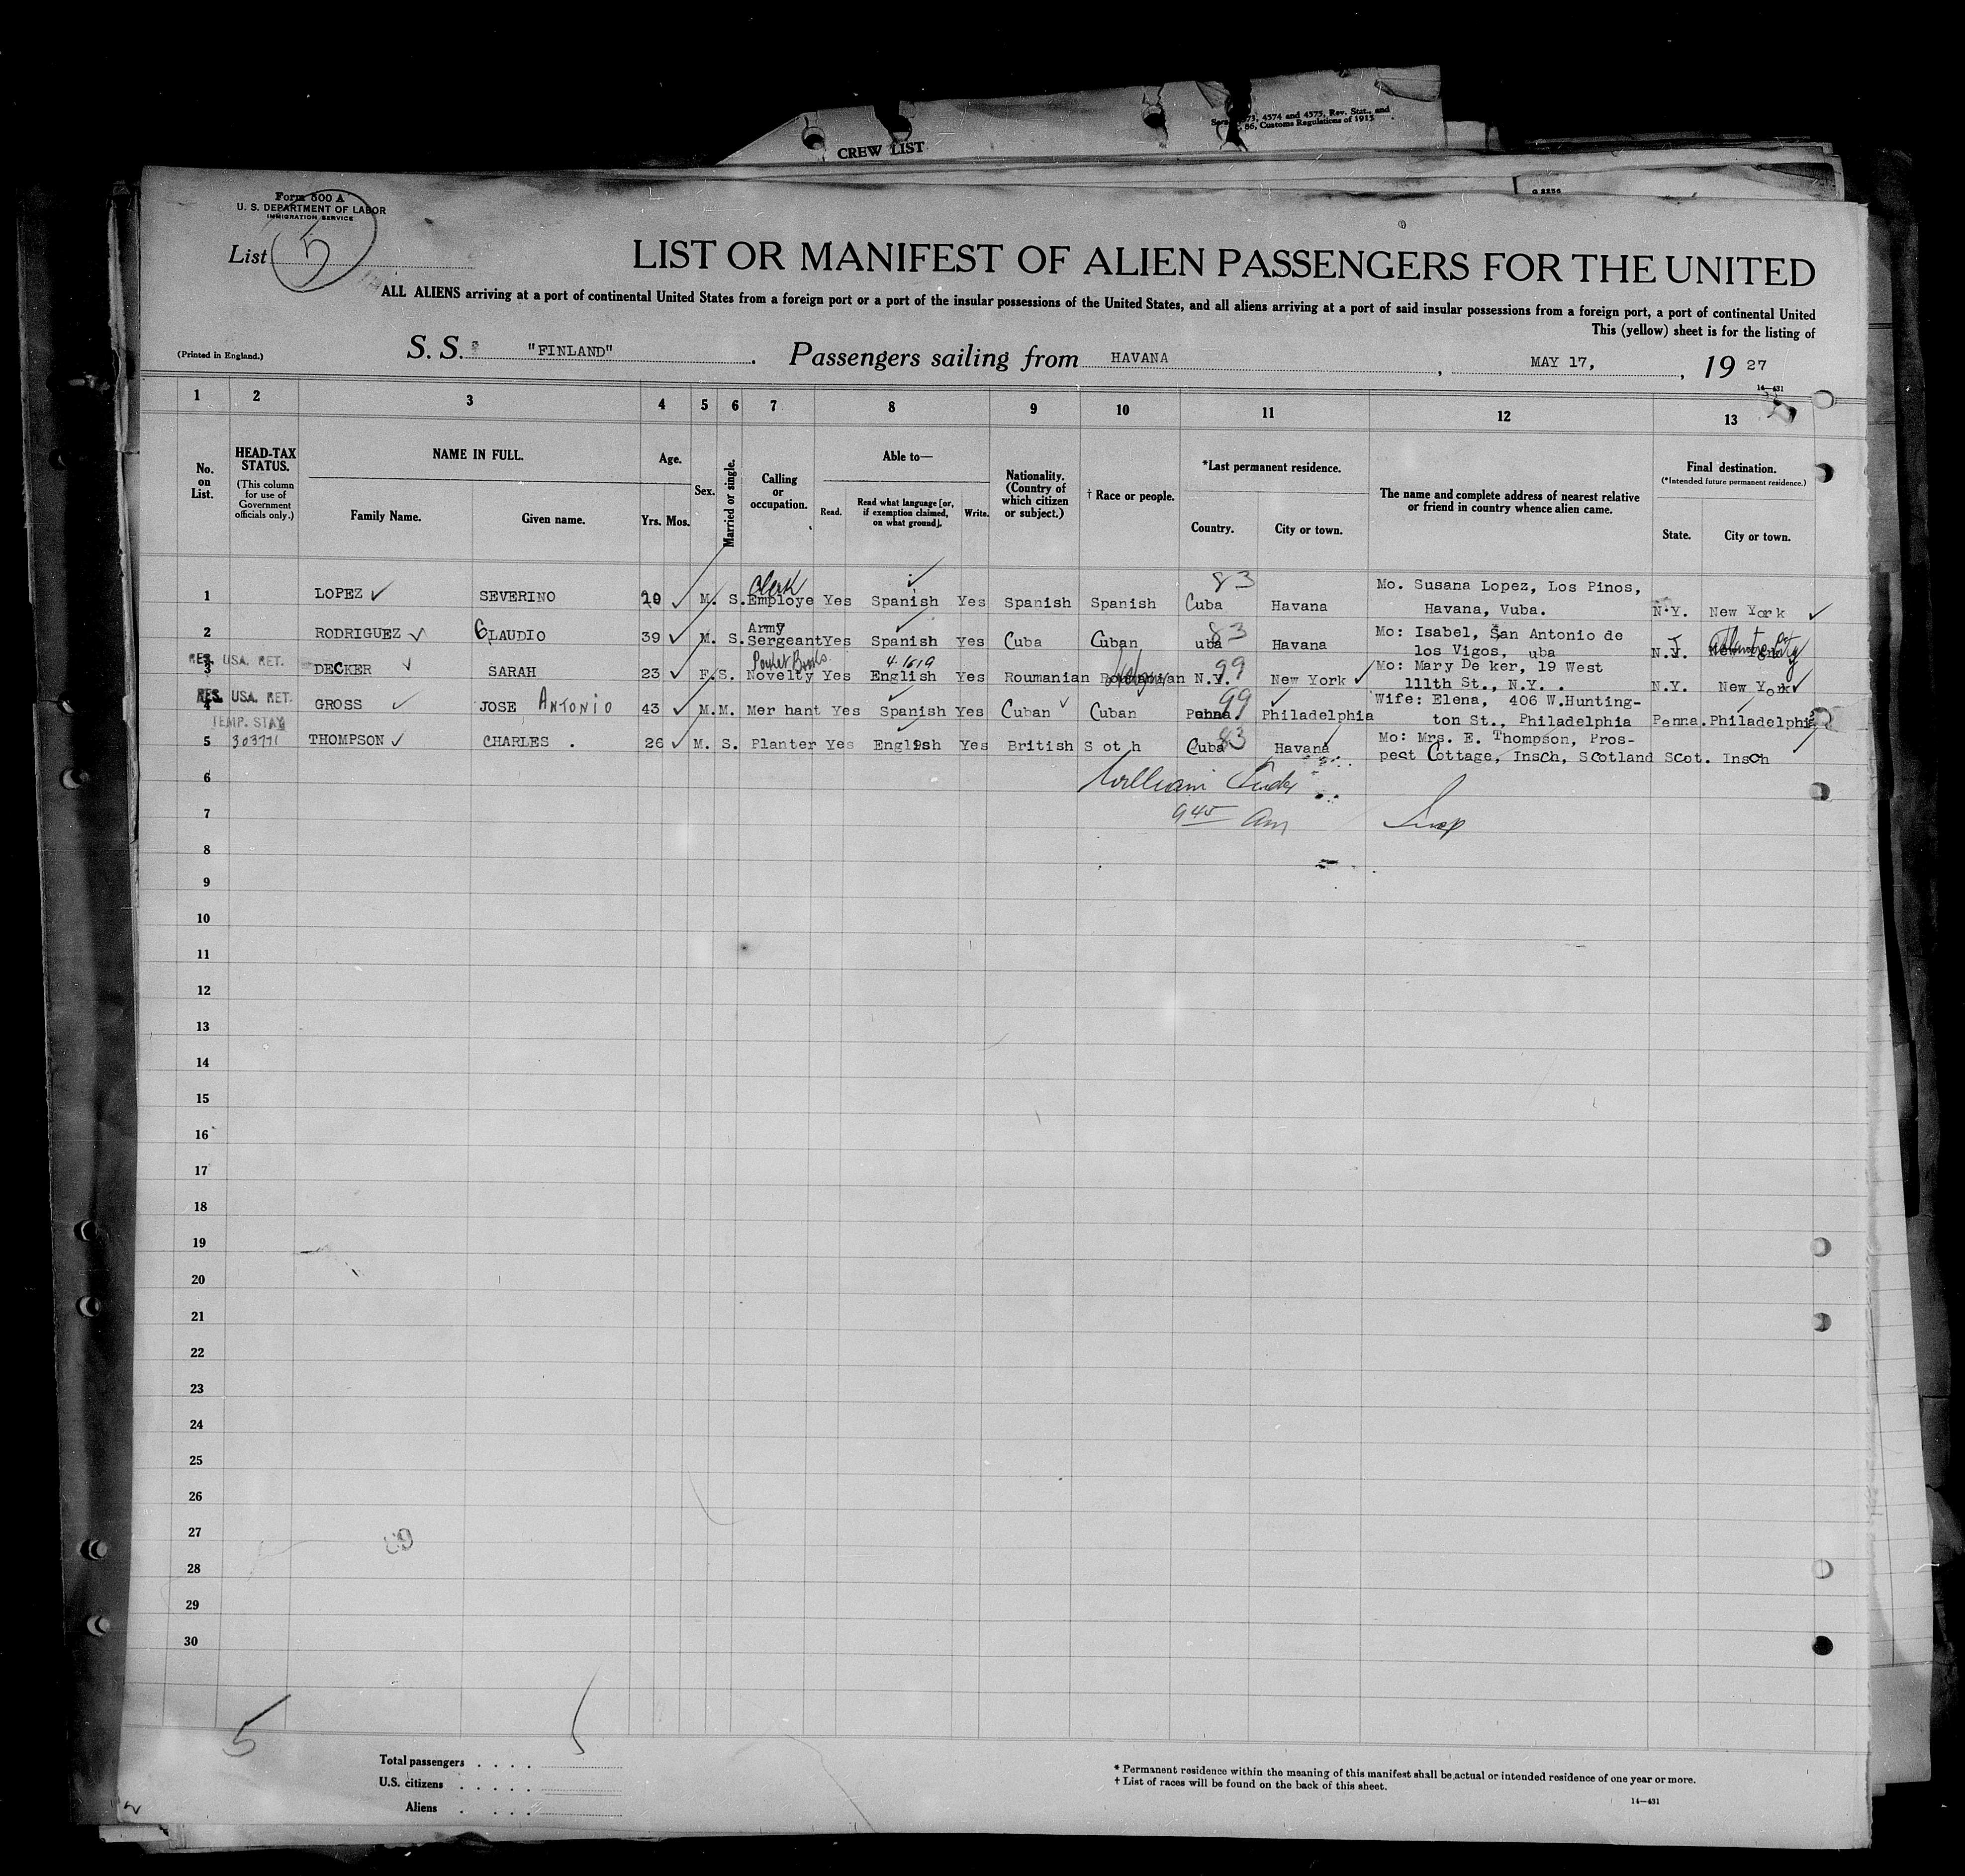 CREW LIST
4574 and 4575, Rev. Stat., and
86, Customs Regulations of 1915
G 2256
Form 500 A
U. S. DEPARTMENT OF LABOR
IMMIGRATION SERVICE
List 5
LIST OR MANIFEST OF ALIEN PASSENGERS FOR THE UNITED
ALL ALIENS arriving at a port of continental United States from a foreign port or a port of the insular possessions of the United States, and all aliens arriving at a port of said insular possessions from a foreign port, a port of continental United
This (yellow) sheet is for the listing of
(Printed in England.)
S. S. "FINLAND" . Passengers sailing from HAVANA , MAY 17, , 19 27
14—431
1 2 3 4 5 6 7 8 9 10 11 12 13
No. on List.
HEAD-TAX STATUS.
(This column for use of Government officials only.)
NAME IN FULL.
Family Name. Given name.
Age.
Yrs. Mos.
Sex.
Married or single.
Calling or occupation.
Able to—
Read. Read what language [or, if exemption claimed, on what ground]. Write.
Nationality. (Country of which citizen or subject.)
† Race or people.
*Last permanent residence.
Country. City or town.
The name and complete address of nearest relative or friend in country whence alien came.
Final destination.
(*Intended future permanent residence.)
State. City or town.
Clerk 83 Mo. Susana Lopez, Los Pinos,
1 LOPEZ SEVERINO 20 M. S. Employe Yes Spanish Yes Spanish Spanish Cuba Havana Havana, Vuba. N.Y. New York
Army 83 Mo: Isabel, San Antonio de
2 RODRIGUEZ CLAUDIO 39 M. S. Sergeant Yes Spanish Yes Cuba Cuban uba Havana los Vigos, uba N.J. Atlantic City
RES. USA. RET. Pocket Books 99 Mo: Mary De ker, 19 West
3 DECKER SARAH 23 F. S. Novelty Yes English Yes Roumanian N.Y. New York 111th St., N.Y. . N.Y. New York
RES. USA. RET. 99 Wife: Elena, 406 W.Hunting-
4 GROSS JOSE ANTONIO 43 M. M. Mer hant Yes Spanish Yes Cuban Cuban Penna. Philadelphia ton St., Philadelphia Penna. Philadelphia
TEMP. STAY 83 Mo: Mrs. E. Thompson, Pros-
5 303771 THOMPSON CHARLES . 26 M. S. Planter Yes English Yes British S ot h Cuba Havana pect Cottage, Insch, Scotland Scot. Insch
6 William
7 9 45 Am Insp
8
9
10
11
12
13
14
15
16
17
18
19
20
21
22
23
24
25
26
27
28
29
30
5
Total passengers . . . .
U.S. citizens . . . . .
Aliens . . . .
* Permanent residence within the meaning of this manifest shall be actual or intended residence of one year or more.
† List of races will be found on the back of this sheet.
14—431